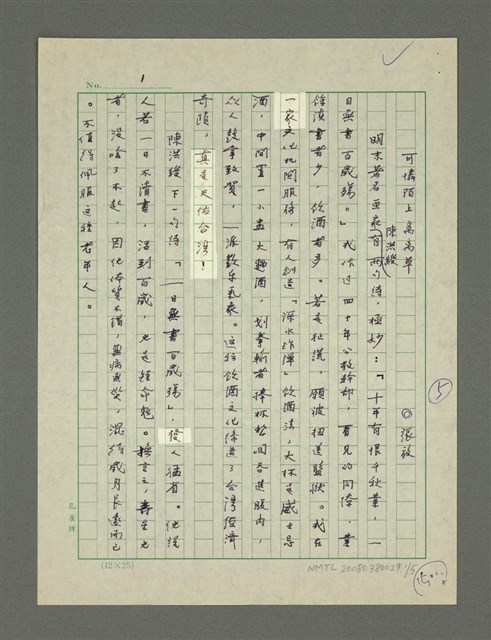 No. 1
可憐陌上離離草
◎張放
明末著名畫家陳洪綬有兩句詩，極妙：「十年有恨千秋業，一
日無書百歲殤。」我作過四十年公教幹部，看見的同僚，業
餘讀書者少，飲酒者多。若是扯謊，願被扭送監獄。我在
一家文化机関服務，有人創造「深水炸彈」飲酒法，大杯是威士忌
酒，中間置一小盅大麯酒，划拳輸者捧杯整個吞進腹內，
众人鼓掌致賀，一派歡乐氣氛。這种飲酒文化締造了台灣經濟
奇蹟，真是天佑台灣！
陳洪綬下一句詩「一日無書百歲殤」，發人猛省。他說
人若一日不讀書，活到百歲，也是短命鬼。換言之，壽星也
者，沒啥了不起，因他体質不錯，無病無災，混的歲月長遠而已
。不值得佩服這種老年人。
5
孔雀牌
(12×25)
NMTL 20080380029 1/5